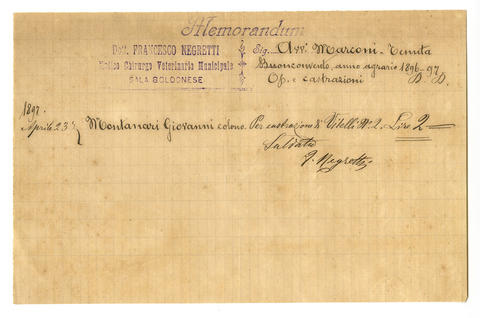 Memorandum
Dott. FRANCESCO NEGRETTI
Medico Chirurgo Veterinario Municipale
SALA BOLOGNESE
Sig. Avv. Marconi - Tenuta
Buonconvento, anno agrario 1896-97
Op. e castrazioni D. D.
1897.
Aprile 23 Montanari Giovanni colono. Per castrazione di Vitelli No. 2. Lire 2
Saldato
F. Negretti